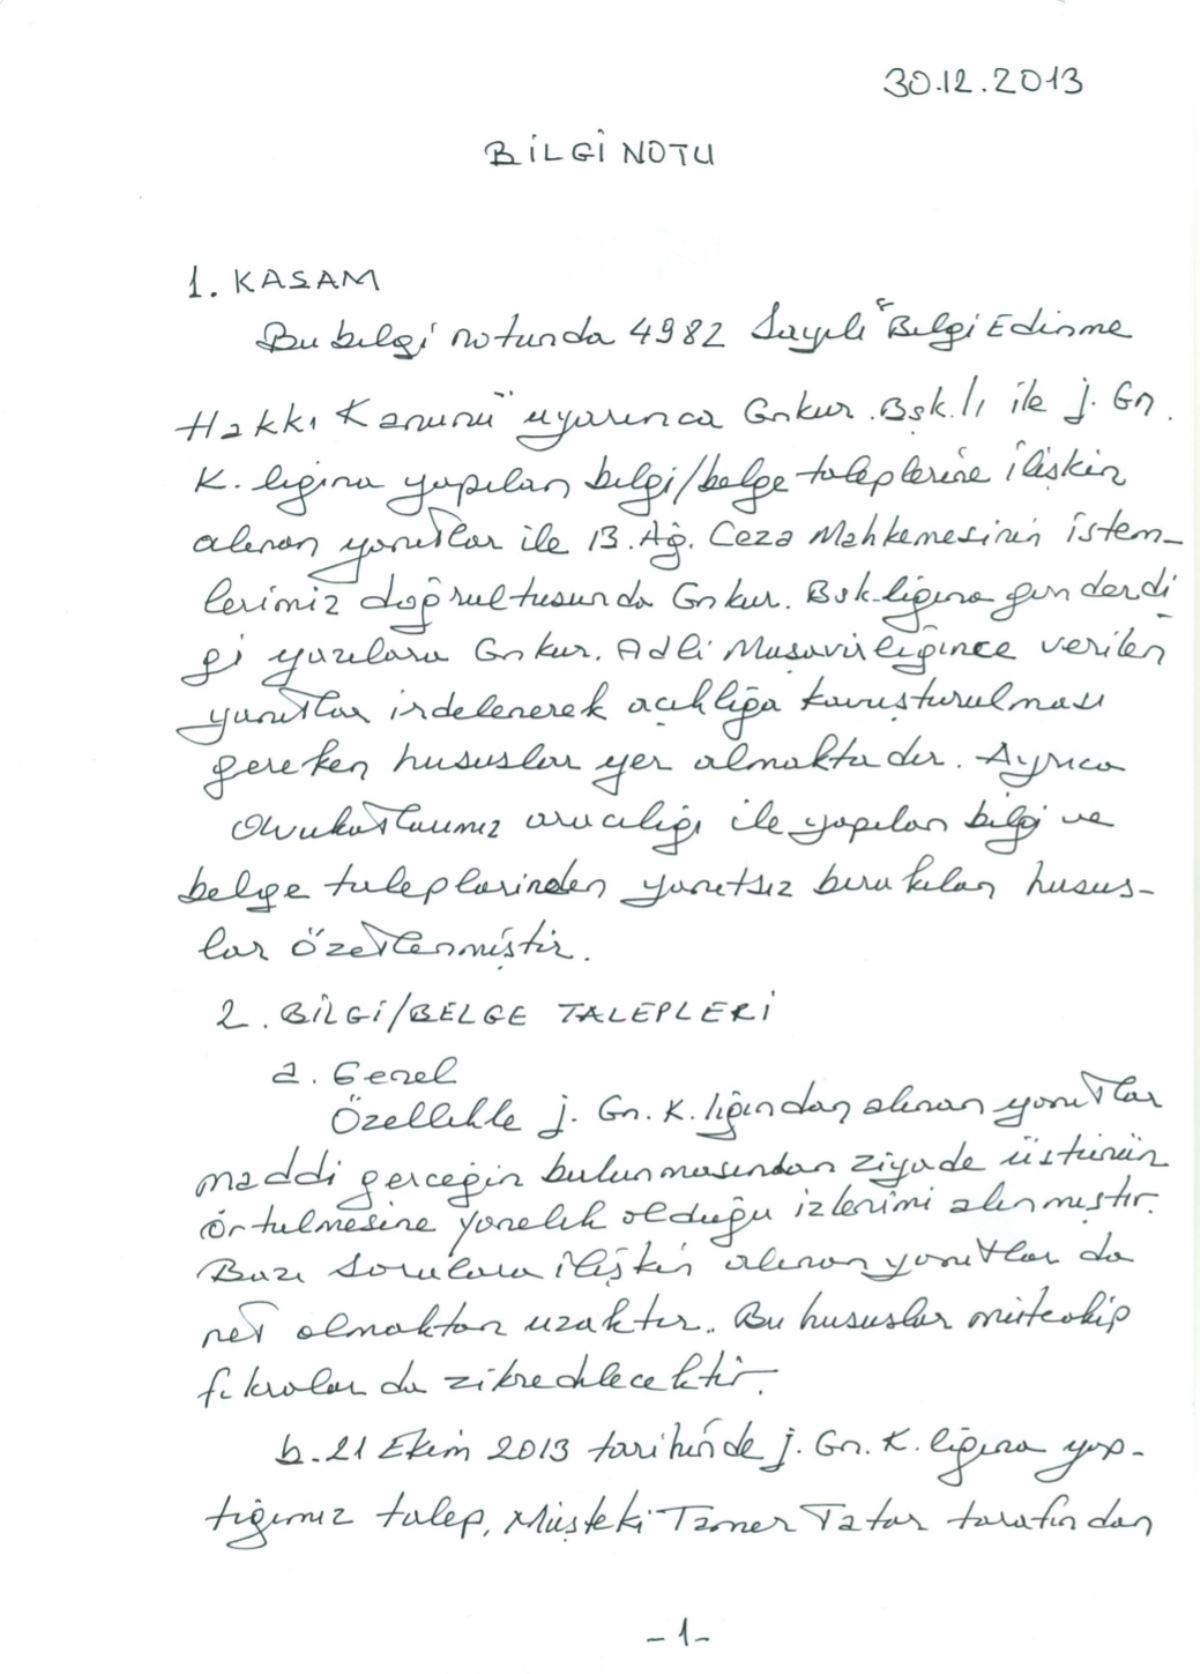 30.12.2013
BİLGİ NOTU
1. KASAM
Bu bilgi notunda 4982 Sayılı "Bilgi Edinme
Hakkı Kanunu" uyarınca Gnkur. Bşk.lı ile J. Gn.
K. lığına yapılan bilgi/belge taleplerine ilişkin
alınan yanıtlar ile 13. Ağ. Ceza Mahkemesinin istem-
lerimiz doğrultusunda Gnkur. Bşk.lığına gönderdi
ği yazılara Gnkur. Adli Müşavirliğince verilen
yanıtlar irdelenerek açıklığa kavuşturulması
gereken hususlar yer almaktadır. Ayrıca
avukatlarımız aracılığı ile yapılan bilgi ve
belge taleplerinden yanıtsız bırakılan husus-
lar özetlenmiştir.
2. BİLGİ/BELGE TALEPLERİ
a. Genel
Özellikle J. Gn. K. lığından alınan yanıtlar
maddi gerceğin bulunmasından ziyade üstünün
örtülmesine yönelik olduğu izlenimi alınmıştır.
Bazı sorulara ilişkin alınan yanıtlar da
net olmaktan uzaktır. Bu hususlar müteakip
fıkralarda zikredilecektir.
b. 21 Ekim 2013 tarihinde J. Gn. K. lığına yap-
tığımız talep, Müşteki Tamer Tatar tarafından
-1-